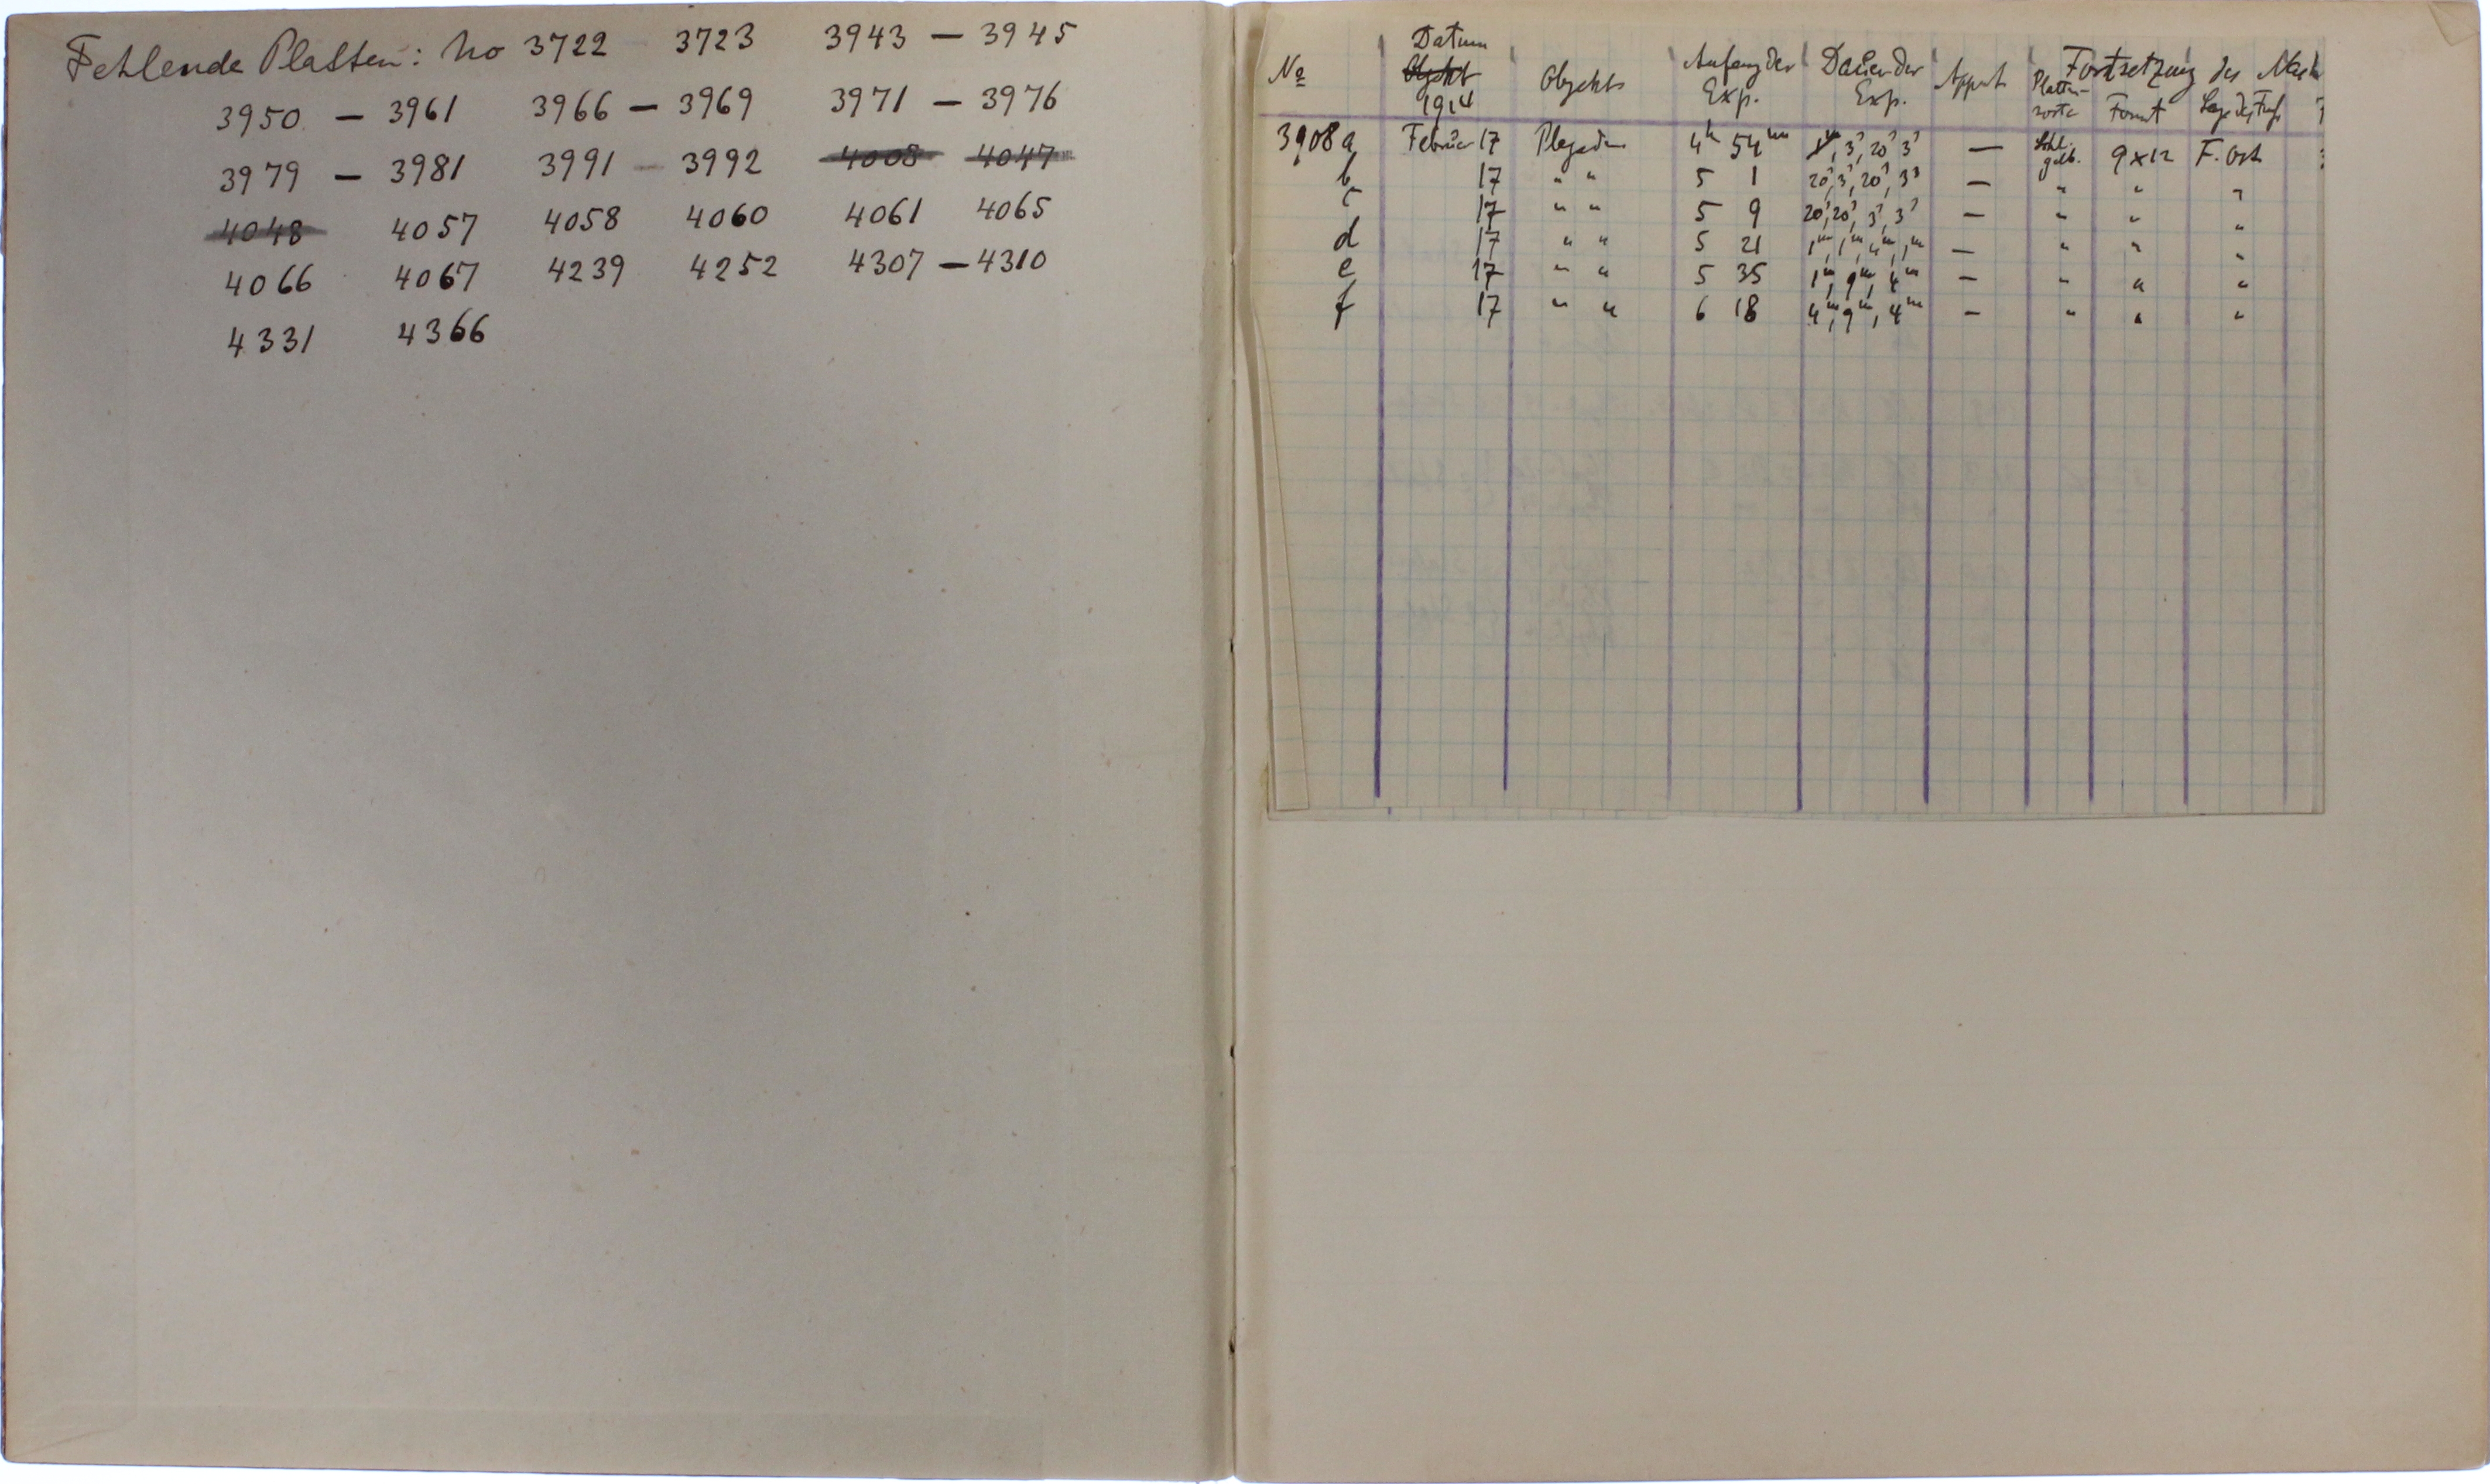 Fehlende Platten: No 3722 3723 3943 — 3945
3950 — 3961 3966 — 3969 3971 — 3976
3979 — 3981 3991 — 3992 4008 4047
4048 4057 4058 4060 4061 4065
4066 4067 4239 4252 4307 — 4310
4331 4366
Fortsetzung der
No Datum Objekt 1914 Objekts Anfang der Exp. Dauer der Exp. Platten- Format
3908a Februar 17 Plejaden 4h 54m 3s, 20s 3s — Schl. gelb. 9x12 F. Ost
b 17 " " 5 1 20s, 3s, 20s, 3s — " " "
c 17 " " 5 9 20s, 20s, 3s, 3s — " " "
d 17 " " 5 21 1m, 1m, 4m, 1m — " " "
e 17 " " 5 35 1m, 9m, 4m — " " "
f 17 " " 6 18 4m, 9m, 4m — " " "